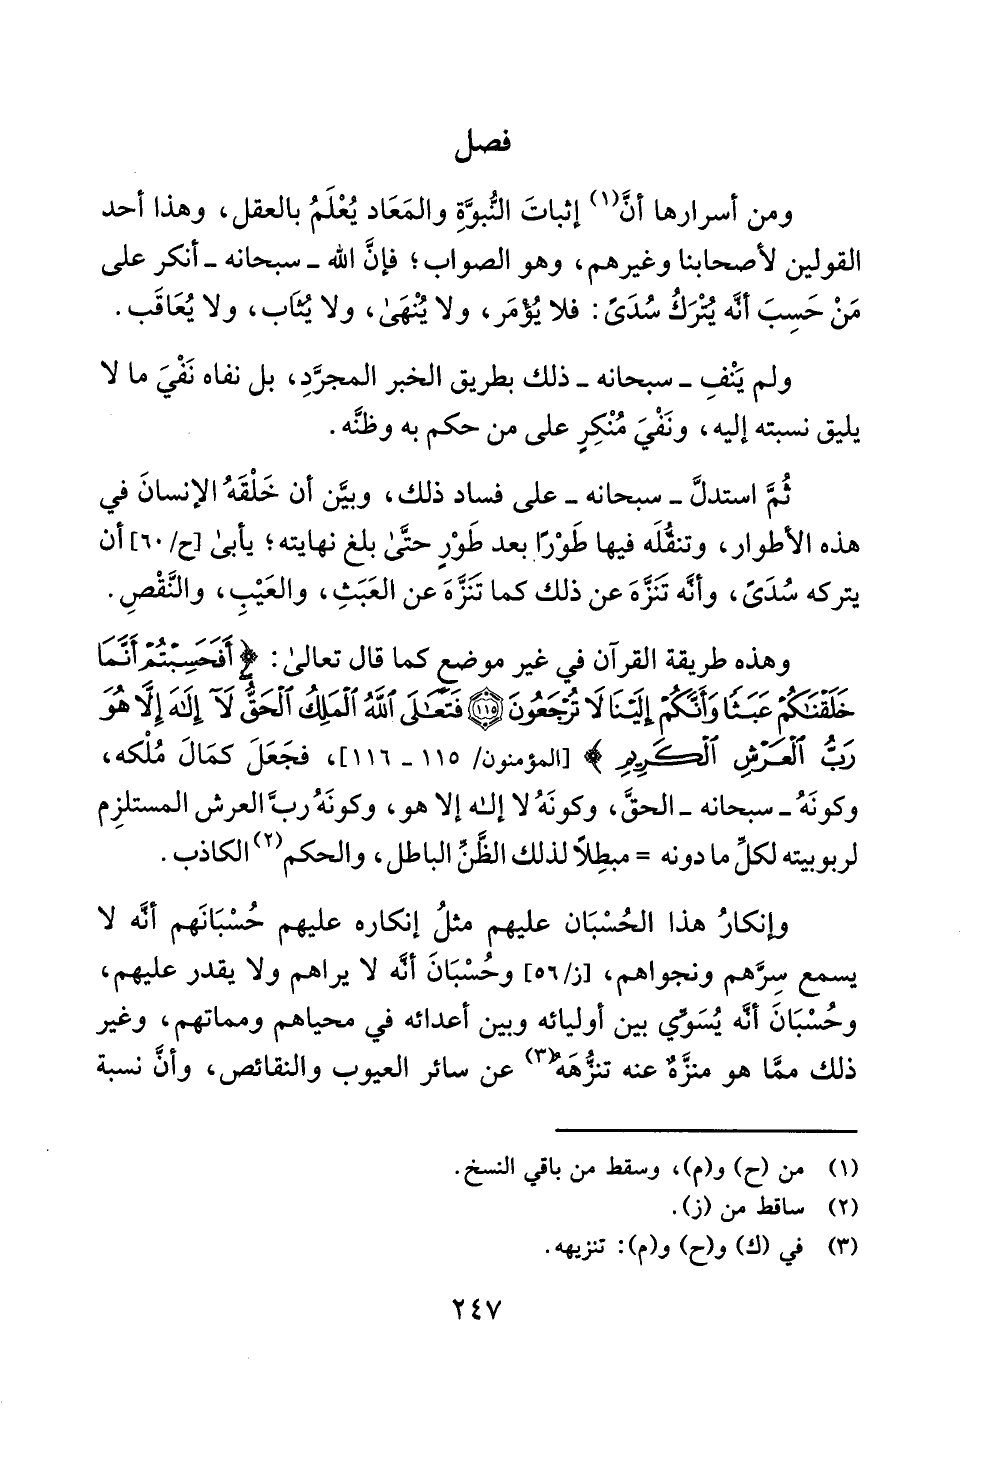 فصل
ومن أسرارها أنَّ(١) إثباتَ النُّبوَّةِ والمَعَاد يُعْلَمُ بالعقل، وهذا أحد
القولين لأصحابنا وغيرهم، وهو الصواب؛ فإنَّ الله ـ سبحانه ـ أنكر على
مَنْ حَسِبَ أنَّه يُتْرَكُ سُدَىً: فلا يُؤْمَر، ولا يُنْهَىٰ، ولا يُثَاب، ولا يُعَاقَب.
ولم يَنْفِ ـ سبحانه ـ ذلك بطريق الخبر المجرَّدِ، بل نفاه نَفْيَ ما لا
يليق نسبته إليه، ونَفْيَ مُنْكِرٍ على من حكم به وظنَّه.
ثُمَّ استدلَّ ـ سبحانه ـ على فساد ذلك، وبيَّن أن خَلْقَهُ الإنسانَ في
هذه الأطوار، وتنقُّلَه فيها طَوْرًا بعد طَوْرٍ حتَّىٰ بلغ نهايته؛ يأبىٰ [ح/٦٠] أن
يتركه سُدَىً، وأنَّه تَنَزَّهَ عن ذلك كما تَنَزَّهَ عن العَبَثِ، والعَيْبِ، والنَّقْصِ.
وهذه طريقة القرآن في غير موضع كما قال تعالىٰ: ﴿أَفَحَسِبْتُمْ أَنَّمَا
خَلَقْنَٰكُمْ عَبَثًا وَأَنَّكُمْ إِلَيْنَا لَا تُرْجَعُونَ ١١٥ فَتَعَٰلَى ٱللَّهُ ٱلْمَلِكُ ٱلْحَقُّ لَآ إِلَٰهَ إِلَّا هُوَ
رَبُّ ٱلْعَرْشِ ٱلْكَرِيمِ﴾ [المؤمنون/ ١١٥ ـ ١١٦]، فجَعَلَ كمالَ مُلْكه،
وكونَهُ ـ سبحانه ـ الحقَّ، وكونَهُ لا إلٰه إلا هو، وكونَهُ ربَّ العرش المستلزِم
لربوبيته لكلِّ ما دونه = مبطِلاً لذلك الظَّنِّ الباطل، والحكم(٢) الكاذب.
وإنكارُ هذا الحُسْبَان عليهم مثلُ إنكاره عليهم حُسْبَانَهم أنَّه لا
يسمع سِرَّهم ونجواهم، [ز/٥٦] وحُسْبَانَ أنَّه لا يراهم ولا يقدر عليهم،
وحُسْبَانَ أنَّه يُسَوِّي بين أوليائه وبين أعدائه في محياهم ومماتهم، وغير
ذلك ممَّا هو منزَّهٌ عنه تنزُّهَهُ(٣) عن سائر العيوب والنقائص، وأنَّ نسبة
(١) من (ح) و(م)، وسقط من باقي النسخ.
(٢) ساقط من (ز).
(٣) في (ك) و(ح) و(م): تنزيهه.
٢٤٧